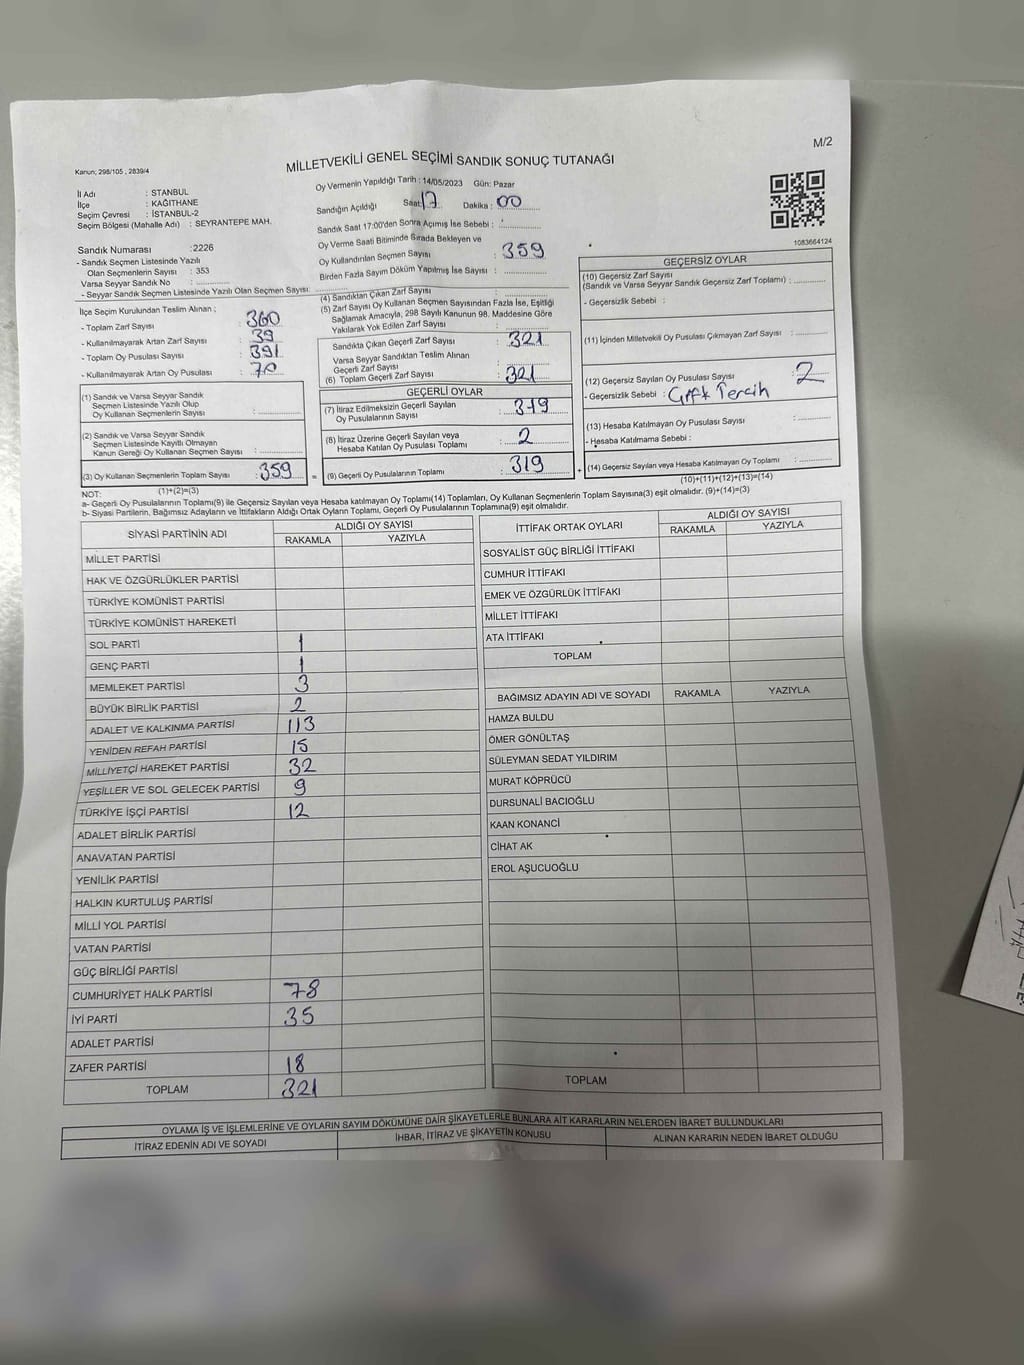 M/2
Kanun; 298/105 , 2839/4
MİLLETVEKİLİ GENEL SEÇİMİ SANDIK SONUÇ TUTANAĞI
İl Adı : STANBUL
İlçe : KAĞITHANE
Seçim Çevresi : İSTANBUL-2
Seçim Bölgesi (Mahalle Adı) : SEYRANTEPE MAH.
Sandık Numarası :2226
- Sandık Seçmen Listesinde Yazılı
Olan Seçmenlerin Sayısı : 353
Varsa Seyyar Sandık No :
- Seyyar Sandık Seçmen Listesinde Yazılı Olan Seçmen Sayısı:
İlçe Seçim Kurulundan Teslim Alınan ;
- Toplam Zarf Sayısı : 360
- Kullanılmayarak Artan Zarf Sayısı : 39
- Toplam Oy Pusulası Sayısı : 391
- Kullanılmayarak Artan Oy Pusulası : 70
(1) Sandık ve Varsa Seyyar Sandık
Seçmen Listesinde Yazılı Olup
Oy Kullanan Seçmenlerin Sayısı :
(2) Sandık ve Varsa Seyyar Sandık
Seçmen Listesinde Kayıtlı Olmayan
Kanun Gereği Oy Kullanan Seçmen Sayısı :
(3) Oy Kullanan Seçmenlerin Toplam Sayısı : 359
(1)+(2)=(3)
Oy Vermenin Yapıldığı Tarih : 14/05/2023 Gün: Pazar
Sandığın Açıldığı Saat: 17 Dakika : 00
Sandık Saat 17:00'den Sonra Açımış İse Sebebi :
Oy Verme Saati Bitiminde Sırada Bekleyen ve
Oy Kullandırılan Seçmen Sayısı : 359
Birden Fazla Sayım Döküm Yapılmış İse Sayısı :
(4) Sandıktan Çıkan Zarf Sayısı :
(5) Zarf Sayısı Oy Kullanan Seçmen Sayısından Fazla İse, Eşitliği
Sağlamak Amacıyla, 298 Sayılı Kanunun 98. Maddesine Göre
Yakılarak Yok Edilen Zarf Sayısı :
Sandıkta Çıkan Geçerli Zarf Sayısı : 321
Varsa Seyyar Sandıktan Teslim Alınan
Geçerli Zarf Sayısı :
(6) Toplam Geçerli Zarf Sayısı : 321
GEÇERLİ OYLAR
(7) İtiraz Edilmeksizin Geçerli Sayılan
Oy Pusulalarının Sayısı : 319
(8) İtiraz Üzerine Geçerli Sayılan veya
Hesaba Katılan Oy Pusulası Toplamı : 2
= (9) Geçerli Oy Pusulalarının Toplamı : 319 +
1083664124
GEÇERSİZ OYLAR
(10) Geçersiz Zarf Sayısı
(Sandık ve Varsa Seyyar Sandık Geçersiz Zarf Toplamı) :
- Geçersizlik Sebebi :
(11) İçinden Milletvekili Oy Pusulası Çıkmayan Zarf Sayısı :
(12) Geçersiz Sayılan Oy Pusulası Sayısı : 2
- Geçersizlik Sebebi : Çift Tercih
(13) Hesaba Katılmayan Oy Pusulası Sayısı :
- Hesaba Katılmama Sebebi :
(14) Geçersiz Sayılan veya Hesaba Katılmayan Oy Toplamı :
(10)+(11)+(12)+(13)=(14)
NOT:
a- Geçerli Oy Pusulalarının Toplamı(9) ile Geçersiz Sayılan veya Hesaba katılmayan Oy Toplamı(14) Toplamları, Oy Kullanan Seçmenlerin Toplam Sayısına(3) eşit olmalıdır. (9)+(14)=(3)
b- Siyasi Partilerin, Bağımsız Adayların ve İttifakların Aldığı Ortak Oyların Toplamı, Geçerli Oy Pusulalarının Toplamına(9) eşit olmalıdır.
SİYASİ PARTİNİN ADI ALDIĞI OY SAYISI
RAKAMLA YAZIYLA
MİLLET PARTİSİ
HAK VE ÖZGÜRLÜKLER PARTİSİ
TÜRKİYE KOMÜNİST PARTİSİ
TÜRKİYE KOMÜNİST HAREKETİ
SOL PARTİ 1
GENÇ PARTİ 1
MEMLEKET PARTİSİ 3
BÜYÜK BİRLİK PARTİSİ 2
ADALET VE KALKINMA PARTİSİ 113
YENİDEN REFAH PARTİSİ 15
MİLLİYETÇİ HAREKET PARTİSİ 32
YEŞİLLER VE SOL GELECEK PARTİSİ 9
TÜRKİYE İŞÇİ PARTİSİ 12
ADALET BİRLİK PARTİSİ
ANAVATAN PARTİSİ
YENİLİK PARTİSİ
HALKIN KURTULUŞ PARTİSİ
MİLLİ YOL PARTİSİ
VATAN PARTİSİ
GÜÇ BİRLİĞİ PARTİSİ
CUMHURİYET HALK PARTİSİ 78
İYİ PARTİ 35
ADALET PARTİSİ
ZAFER PARTİSİ 18
TOPLAM 321
İTTİFAK ORTAK OYLARI ALDIĞI OY SAYISI
RAKAMLA YAZIYLA
SOSYALİST GÜÇ BİRLİĞİ İTTİFAKI
CUMHUR İTTİFAKI
EMEK VE ÖZGÜRLÜK İTTİFAKI
MİLLET İTTİFAKI
ATA İTTİFAKI
TOPLAM
BAĞIMSIZ ADAYIN ADI VE SOYADI RAKAMLA YAZIYLA
HAMZA BULDU
ÖMER GÖNÜLTAŞ
SÜLEYMAN SEDAT YILDIRIM
MURAT KÖPRÜCÜ
DURSUNALİ BACIOĞLU
KAAN KONANCİ
CİHAT AK
EROL AŞUCUOĞLU
TOPLAM
OYLAMA İŞ VE İŞLEMLERİNE VE OYLARIN SAYIM DÖKÜMÜNE DAİR ŞİKAYETLERLE BUNLARA AİT KARARLARIN NELERDEN İBARET BULUNDUKLARI
İTİRAZ EDENİN ADI VE SOYADI İHBAR, İTİRAZ VE ŞİKAYETİN KONUSU ALINAN KARARIN NEDEN İBARET OLDUĞU